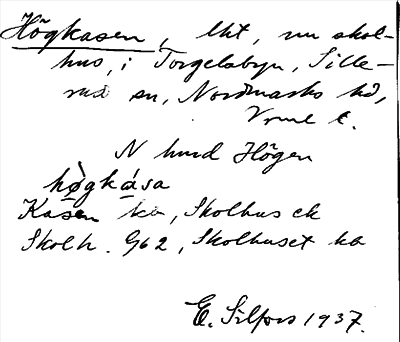 Högkasen, lht, nu skol-
hus, i Torgelsbyn, Sille-
rud sn, Nordmarks hd,
Vrml l.
N hmd Högen
hògkása
Kasen ka, Skolhus ek
Skolh. G62, Skolhuset ka
E. Silfors 1937.